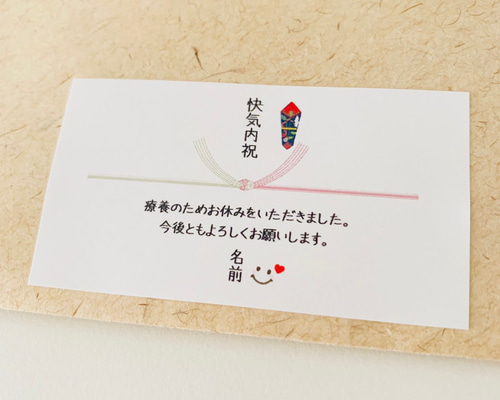 快気内祝
療養のためお休みをいただきました。
今後ともよろしくお願いします。
名前